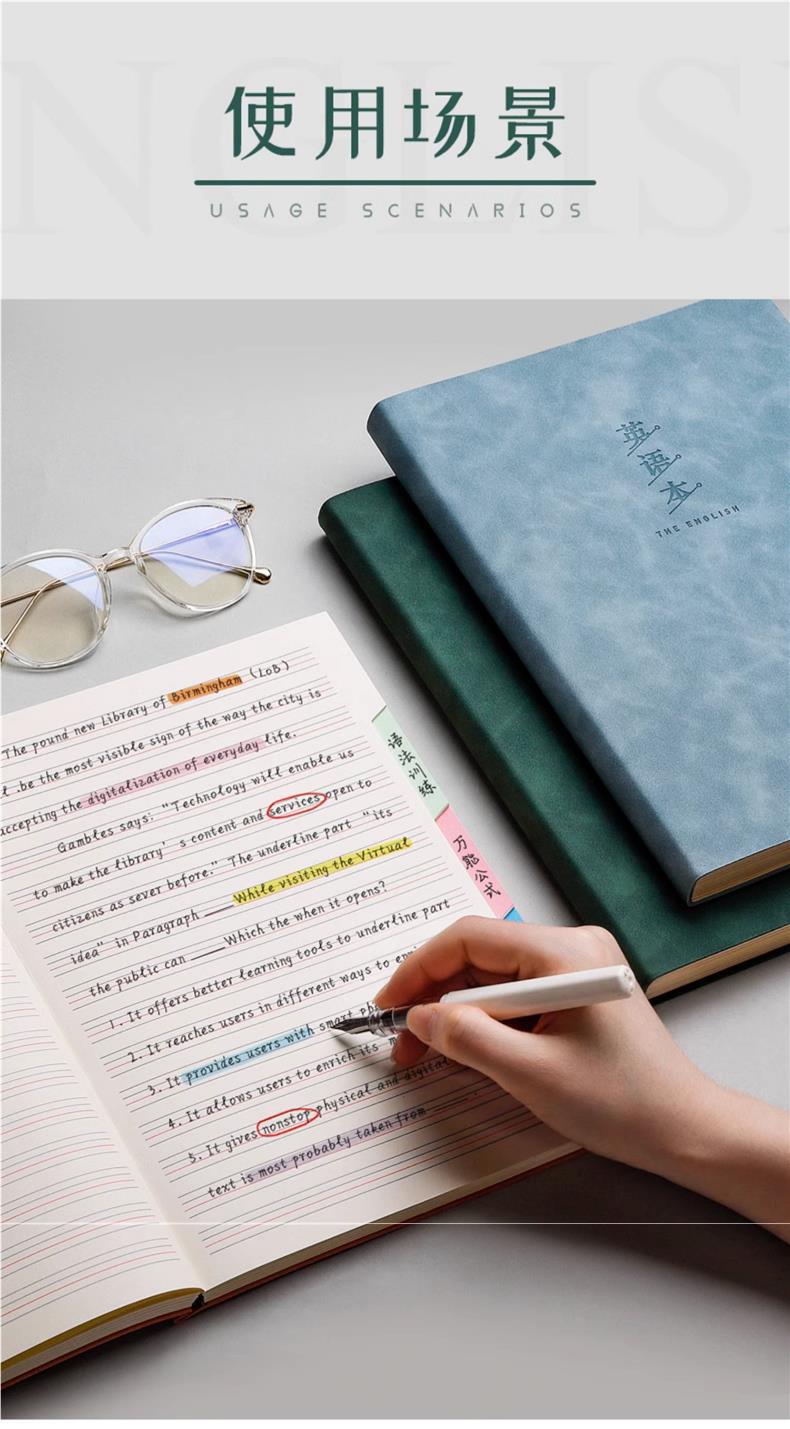 使用场景
USAGE SCENARIOS
英语本
THE ENGLISH
The pound new Library of Birmingham (LoB)
l .be the most visible sign of the way the city is
accepting the digitalization of everyday life.
Gambles says: "Technology will enable us
to make the library's content and services open to
citizens as sever before." The underline part "its
idea" in Paragraph ____ While visiting the Virtual
the public can ____ Which the when it opens?
1. It offers better learning tools to underline part
2. It reaches users in different ways to
3. It provides users with smart
4. It allows users to enrich its
5. It gives nonstop physical and digital
text is most probably taken from ____.
语法训练
万能公式